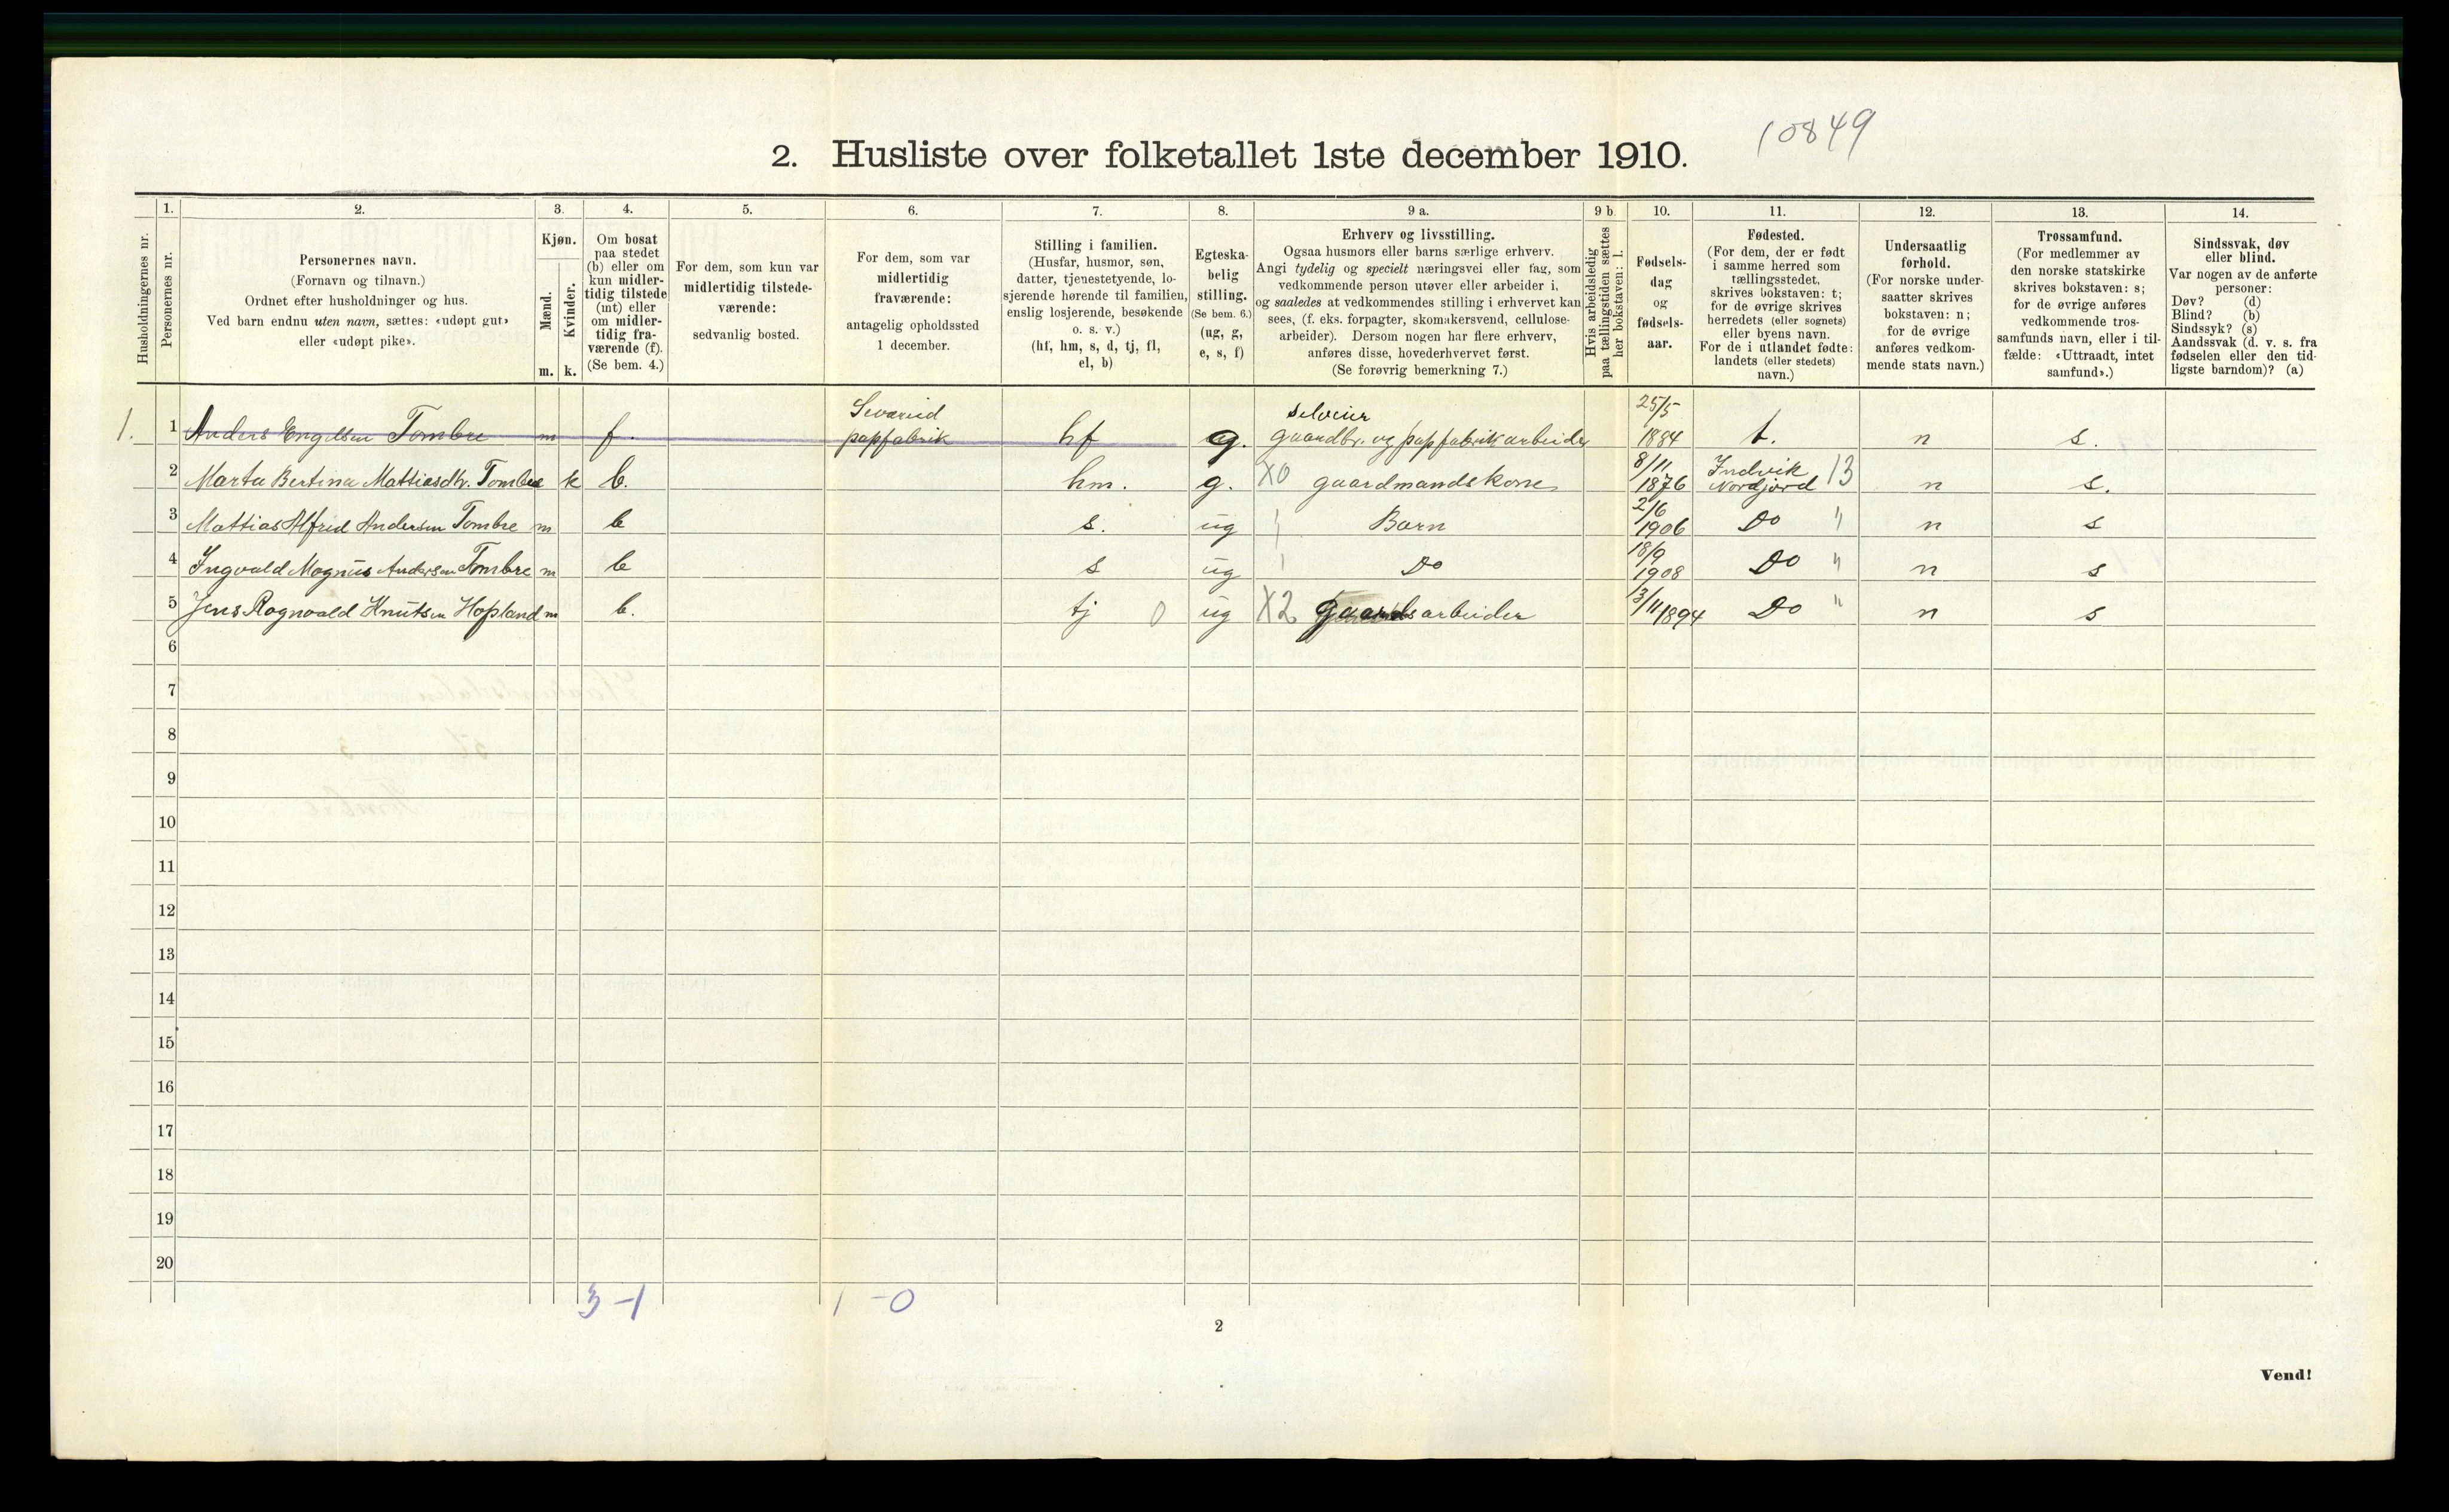 10849
2. Husliste over folketallet 1ste december 1910.
Husholdningernes nr.
1.
Personernes nr.
2.
Personernes navn.
(Fornavn og tilnavn.)
Ordnet efter husholdninger og hus.
Ved barn endnu uten navn, sættes: «udøpt gut»
eller «udøpt pike».
3.
Kjøn.
Mænd.
Kvinder.
m. k.
4.
Om bosat
paa stedet
(b) eller om
kun midler-
tidig tilstede
(mt) eller
om midler-
tidig fra-
værende (f).
(Se bem. 4.)
5.
For dem, som kun var
midlertidig tilstede-
værende:
sedvanlig bosted.
6.
For dem, som var
midlertidig
fraværende:
antagelig opholdssted
1 december.
7.
Stilling i familien.
(Husfar, husmor, søn,
datter, tjenestetyende, lo-
sjerende hørende til familien,
enslig losjerende, besøkende
o. s. v.)
(hf, hm, s, d, tj, fl,
el, b)
8.
Egteska-
belig
stilling.
(Se bem. 6.)
(ug, g,
e, s, f)
9 a.
Erhverv og livsstilling.
Ogsaa husmors eller barns særlige erhverv.
Angi tydelig og specielt næringsvei eller fag, som
vedkommende person utøver eller arbeider i,
og saaledes at vedkommendes stilling i erhvervet kan
sees, (f. eks. forpagter, skomakersvend, cellulose-
arbeider). Dersom nogen har flere erhverv,
anføres disse, hovederhvervet først.
(Se forøvrig bemerkning 7.)
9 b.
Hvis arbeidsledig
paa tællingstiden sættes
her bokstaven: l.
10.
Fødsels-
dag
og
fødsels-
aar.
11.
Fødested.
(For dem, der er født
i samme herred som
tællingsstedet,
skrives bokstaven: t;
for de øvrige skrives
herredets (eller sognets)
eller byens navn.
For de i utlandet fødte:
landets (eller stedets)
navn.)
12.
Undersaatlig
forhold.
(For norske under-
saatter skrives
bokstaven: n;
for de øvrige
anføres vedkom-
mende stats navn.)
13.
Trossamfund.
(For medlemmer av
den norske statskirke
skrives bokstaven: s;
for de øvrige anføres
vedkommende tros-
samfunds navn, eller i til-
fælde: «Uttraadt, intet
samfund».)
14.
Sindssvak, døv
eller blind.
Var nogen av de anførte
personer:
Døv? (d)
Blind? (b)
Sindssyk? (s)
Aandssvak (d. v. s. fra
fødselen eller den tid-
ligste barndom)? (a)
selveier 25/5
1. 1 Anders Engelsen Tombre m f. papfabrik hf g. gaardbr. og papfabrikarbeider 1884 t. n s.
8/11 Indvik
2 Marta Bertina Mattiasdtr. Tombre k b. hm. g. X0 gaardmandskone 1876 Nordfjord 13 n s.
2/6
3 Mattias Alfred Andersen Tombre m b s. ug " Barn 1906 Do " n s
18/9
4 Ingvald Magnus Andersen Tombre m b s ug " Do 1908 Do " n s
5 Jens Rognvald Knutsen Hopland m b. tj 0 ug X2 Gaardsarbeider 13/11 1894 Do " n s
6
7
8
9
10
11
12
13
14
15
16
17
18
19
20
3-1 1-0
2
Vend!